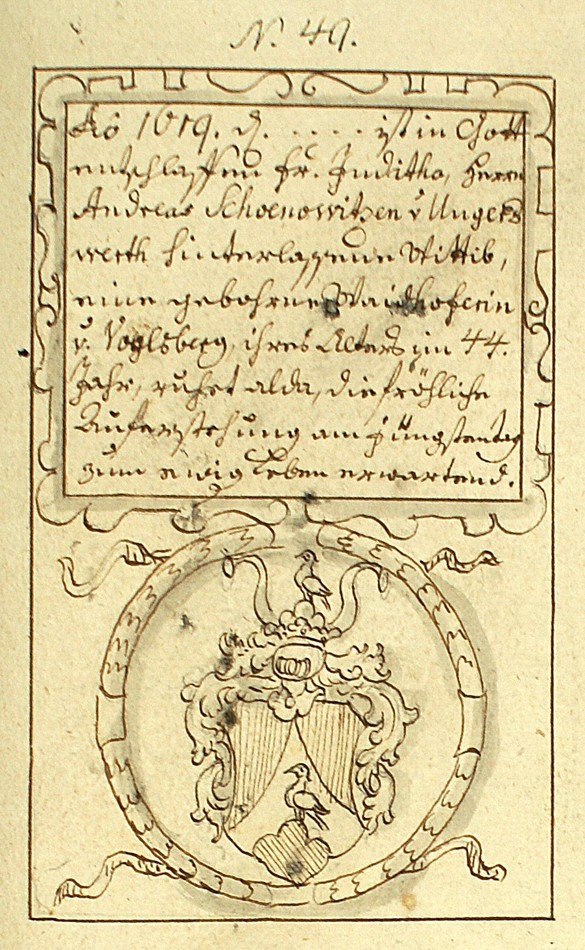 N. 49.
Aõ 1619. d. . . . . . ist in Gott
entschlaffen fr. Juditha, Herrn
Andreas Schoenowitzen v Ungers
werth hinterlassene Wittib,
eine gebohrne Waidhoferin
v. Voglsberg, ihres Alters im 44.
Jahr, ruhet alda, die fröhliche
Auferstehung am Jüngstentag
zum ewig Leben erwartend.